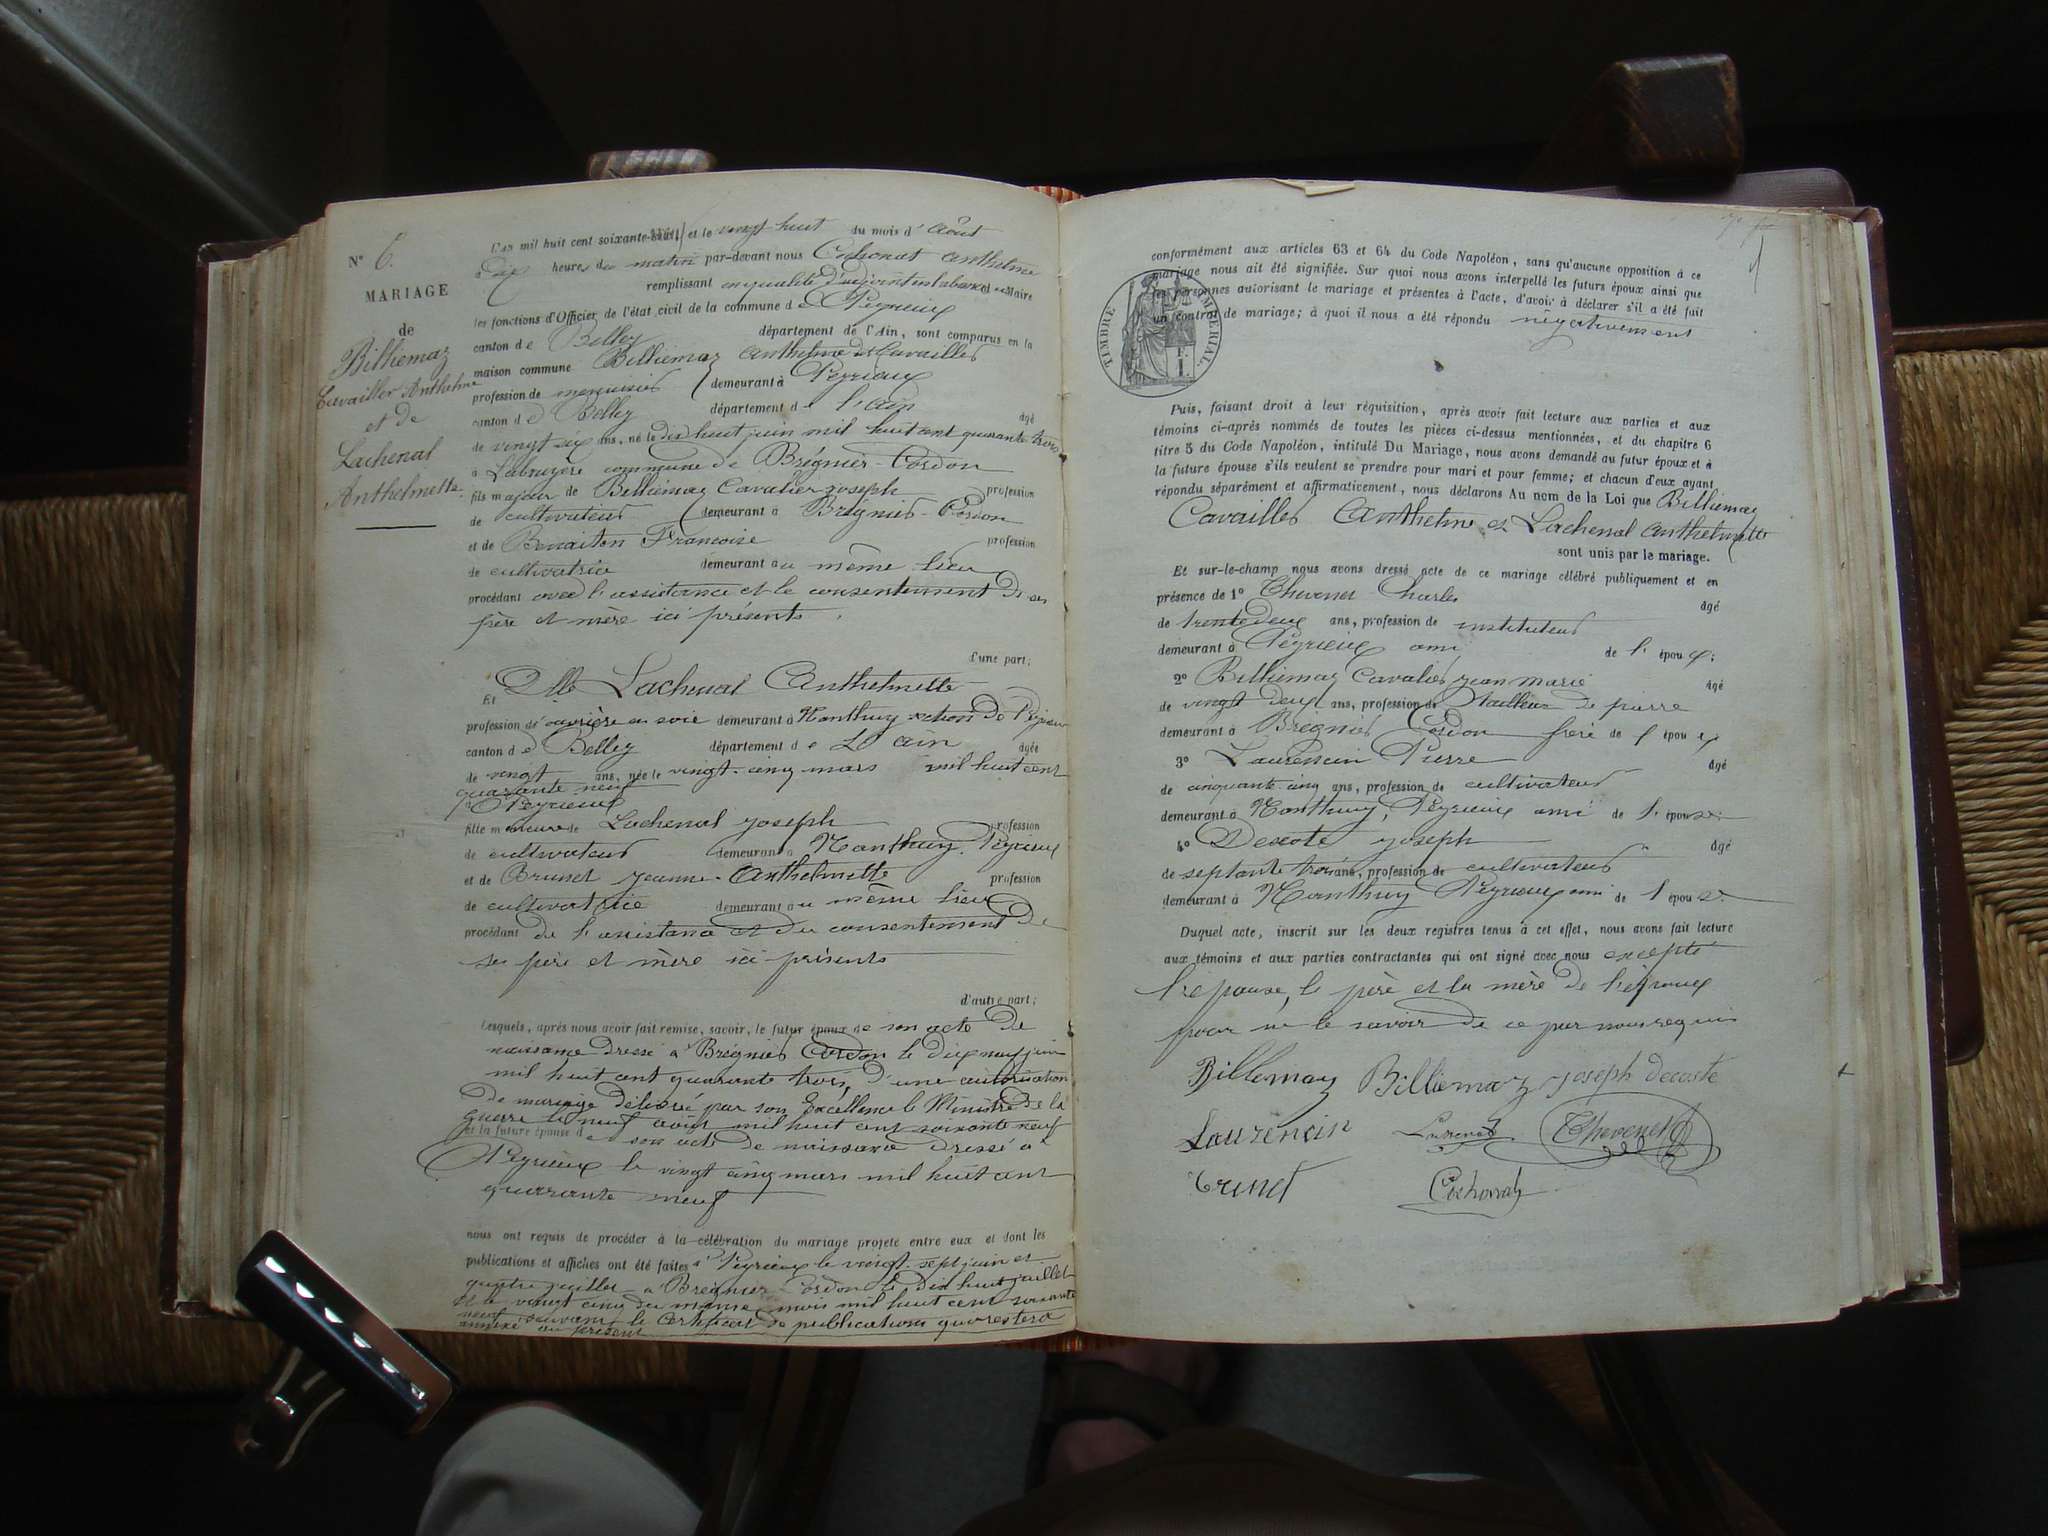 N° 6.
MARIAGE
de
Billiemaz
Cavailler Anthelme
et de
Lachenal
Anthelmette.
L'an mil huit cent soixante et le vingt huit du mois d'Août
à dix heures du matin par-devant nous Cochonat Anthelme
remplissant en qualité d'adjoint en l'absence du Maire
les fonctions d'Officier de l'état civil de la commune de Peyrieux
canton de Belley département de l'Ain, sont comparus en la
maison commune Billiemaz Anthelme dit Cavailler
profession de menuisier demeurant à Peyrieux
canton de Belley département de l'ain âgé
de vingt six ans, né le dix huit juin mil huit cent quarante trois
à Labruyère commune de Brégnier-Cordon
fils majeur de Billiemaz Cavalier joseph profession
de cultivateur demeurant à Brégnier-Cordon
et de Benaiton Françoise profession
de cultivatrice demeurant au même lieu
procédant avec l'assistance et le consentement de ses
père et mère ici présents.
d'une part;
Et Dlle Lachenal Anthelmette
profession d'ouvrière en soie demeurant à Nanthuy section de Peyrieux
canton de Belley département de L'ain âgée
de vingt ans, née le vingt-cinq mars mil huit cent
quarante neuf
à Peyrieux
fille mineure de Lachenal joseph profession
de cultivateur demeurant à Nanthuy, Peyrieux
et de Brunet jeanne-Anthelmette profession
de cultivatrice demeurant au même lieu
procédant de l'assistance et du consentement de
ses père et mère ici présents
d'autre part;
Lesquels, après nous avoir fait remise, savoir, le futur époux de son acte de
naissance dressé à Brégnier Cordon le dix neuf juin
mil huit cent quarante trois, d'une autorisation
de mariage délivrée par son Excellence le Ministre de la
guerre le neuf août mil huit cent soixante neuf
et la future épouse de son acte de naissance dressé à
Peyrieux le vingt cinq mars mil huit cent
quarante neuf
nous ont requis de procéder à la célébration du mariage projeté entre eux et dont les
publications et affiches ont été faites à Peyrieux le vingt-sept juin et
quatre juillet à Brégnier Cordon le dix huit juillet
et le vingt cinq du même mois mil huit cent soixante
neuf suivant le certificat de publications qui restera
annexé au présent
conformément aux articles 63 et 64 du Code Napoléon, sans qu'aucune opposition à ce
mariage nous ait été signifiée. Sur quoi nous avons interpellé les futurs époux ainsi que
les personnes autorisant le mariage et présentes à l'acte, d'avoir à déclarer s'il a été fait
un contrat de mariage; à quoi il nous a été répondu négativement
TIMBRE IMPERIAL
Puis, faisant droit à leur réquisition, après avoir fait lecture aux parties et aux
témoins ci-après nommés de toutes les pièces ci-dessus mentionnées, et du chapitre 6
titre 5 du Code Napoléon, intitulé Du Mariage, nous avons demandé au futur époux et à
la future épouse s'ils veulent se prendre pour mari et pour femme; et chacun d'eux ayant
répondu séparément et affirmativement, nous déclarons Au nom de la Loi que Billiemaz
Cavailler Anthelme et Lachenal Anthelmette
sont unis par le mariage.
Et sur-le-champ nous avons dressé acte de ce mariage célébré publiquement et en
présence de 1° Thevenet Charles âgé
de trente deux ans, profession de instituteur
demeurant à Peyrieux ami de l'époux;
2° Billiemaz Cavalier jean marie âgé
de vingt deux ans, profession de tailleur de pierre
demeurant à Brégnier Cordon frère de l'époux
3° Laurencin Pierre âgé
de cinquante cinq ans, profession de cultivateur
demeurant à Nanthuy, Peyrieux ami de l'épouse;
4° Decoste joseph âgé
de septante trois ans, profession de cultivateur
demeurant à Nanthuy Peyrieux ami de l'épouse.
Duquel acte, inscrit sur les deux registres tenus à cet effet, nous avons fait lecture
aux témoins et aux parties contractantes qui ont signé avec nous excepté
l'epouse, le père et la mère de l'époux
pour ne le savoir de ce par nous requis
Billemaz Billiemaz joseph decoste
Laurencin Thevenet
Brunet Cochonat